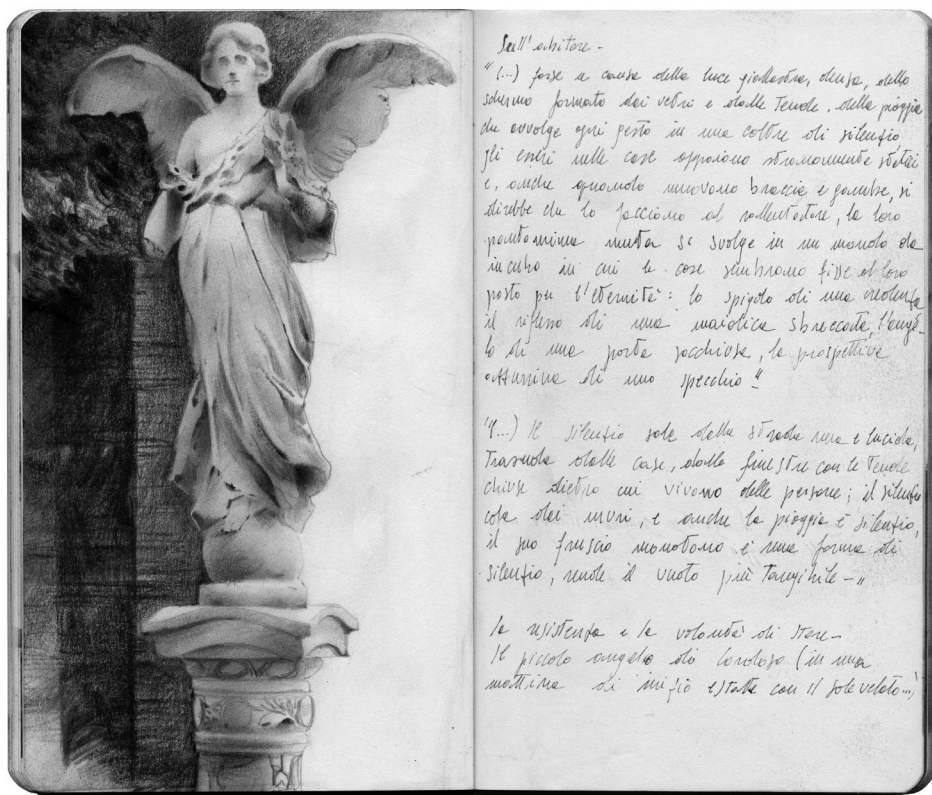 Sull'abitare –
"(...) forse a causa della luce giallastra, densa, dello
schermo formato dai vetri e dalle tende, della pioggia
che avvolge ogni gesto in una coltre di silenzio,
gli esseri nelle case appaiono stranamente statici
e, anche quando muovono braccia e gambe, si
direbbe che lo facciano al rallentatore, la loro
pantomima muta si svolge in un mondo da
incubo in cui le cose sembrano fisse al loro
posto per l'eternità: lo spigolo di una credenza,
il riflesso di una maiolica sbreccata, l'ango-
lo di una porta socchiusa, la prospettiva
di uno specchio"
"(...) Il silenzio sale dalla strada nera e lucida,
trasuda dalle case, dalle finestre con le tende
chiuse dietro cui vivono delle persone; il silenzio
cola dai muri, e anche la pioggia è silenzio,
il suo fruscio monotono è una forma di
silenzio, rende il vuoto più tangibile – "
la resistenza e la volontà di stare –
Il piccolo angelo di (in una
mattina di inizio estate con il sole velato...)